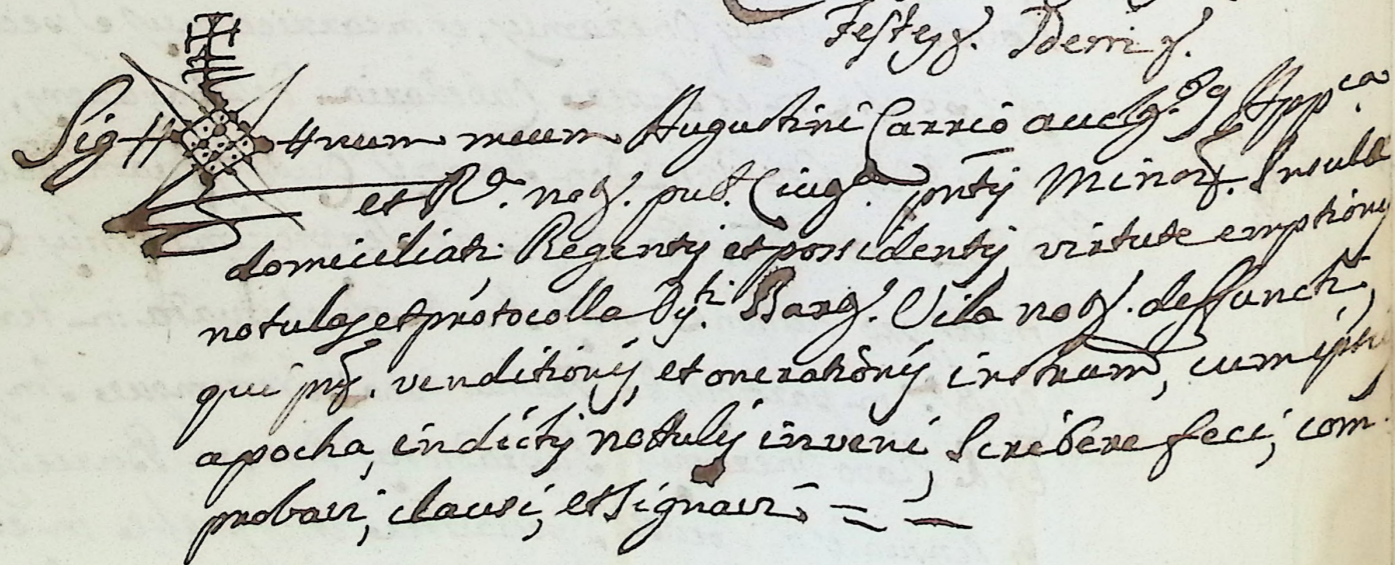 Testes. Idem.
Sig##num meum Augustini Carrio auctb.s App.ca
et R.a not. pub. Civt.a pntis Minor. Insula
domiciliati Regentis et possidentis virtute emptionis
notulas et protocolla D.ti Barth. Vila not. deffuncti,
qui pns. venditionis, et onerationis instrum, cum ipsius
apocha, in dictis notulis inveni, scribere feci, com
probavi, clausi, et signavi = —